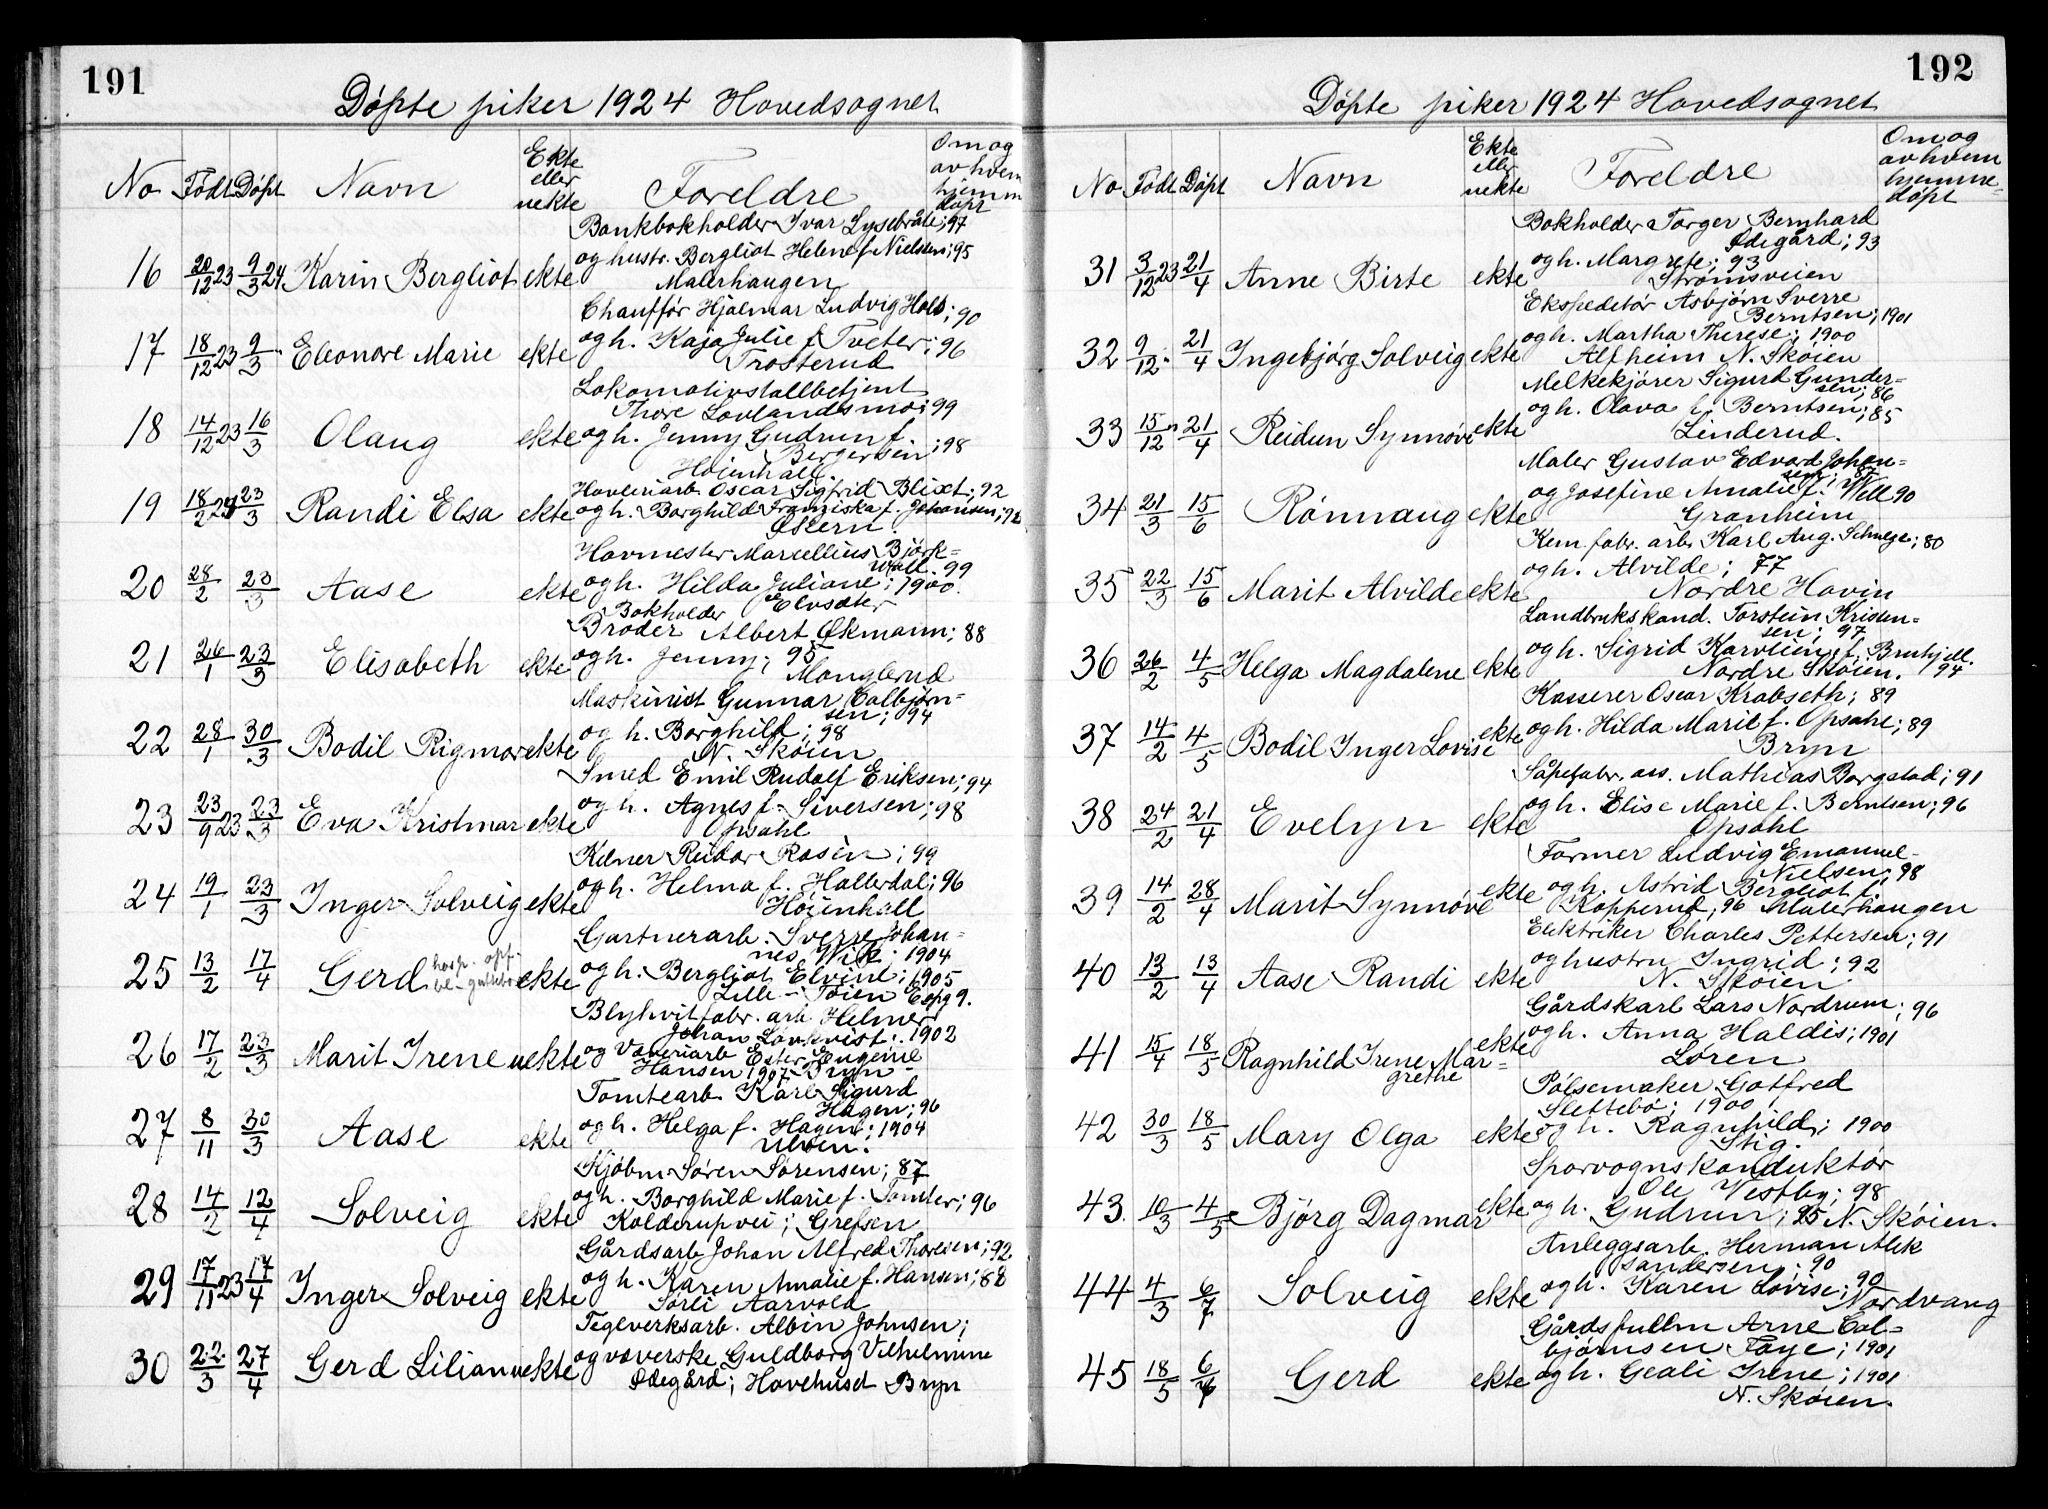 191
Døpte piker 1924 Hovedsognet
No Født Døpt Navn Ekte eller uekte Foreldre Om og av hvem hjemmedøpt
Bankbokholder Ivar Lysebråte; 97
16 20/12 23 9/3 24 Karin Bergliot ekte og hustr. Bergliot Helene f. Nielsen; 95
Malerhaugen
Chauffør Hjalmar Ludvig Hald; 90
17 18/12 23 9/3 Eleonore Marie ekte og h. Kaja Julie f. Tveter; 96
Trosterud
Lokomotivstallbetjent
Thore Lovlandsmo; 99
18 14/12 23 16/3 Olaug ekte og h. Jenny Gudrun f.
Bergersen; 98
Høienhall
Høvleriarb. Oscar Sigfrid Blixt; 92
19 18/2 24 23/3 Randi Elsa ekte og h. Borghild Franziska f. Johansen; 92
Østern
Hovmester Marcellius Bjørk=
wall. 99
20 28/2 23/3 Aase ekte og h. Hilda Juliane; 1900.
Elvsæter
Bokholder
Broder Albert Økmann; 88
21 26/1 23/3 Elisabeth ekte og h. Jenny; 95
Manglerud
Maskinist Gunnar Colbjørn=
sen; 94
22 28/1 30/3 Bodil Rigmor ekte og h. Borghild; 98
N. Skøien
Smed Emil Rudolf Eriksen; 94
23 23/9 23 23/3 Eva Kristmar ekte og h. Agnes f. Siversen; 98
Opsahl
Kelner Reidar Rosén; 99
24 19/1 23/3 Inger Solveig ekte og h. Helma f. Hallerdal; 96
Høienhall
Gartnerarb. Sverre Johan=
nes Wik; 1904
25 13/2 17/4 Gerd ekte og h. Bergliot Elvine; 1905
Lille-Tøien Espg 9.
Blyhvitfabr. arb. Helmer
Johan Løvkvist; 1902
26 17/2 23/3 Marit Irene uekte og Væveriarb Ester Eugenie
Hansen 1907 Bryn
Tomtearb. Karl Sigurd
Hagen; 96
27 8/11 30/3 Aase ekte og h. Helga f. Hagen; 1904
Ulven.
Kjøbm. Søren Sørensen; 87
28 14/2 12/4 Solveig ekte og h. Borghild Marie f. Tomter; 96
Kolderupvei; Grefsen
Gårdsarb. Johan Alfred Thoresen; 92
29 17/11 23 17/4 Inger Solveig ekte og h. Karen Amalie f. Hansen; 88
Sørli Aarvold
Teglverksarb. Albin Johnsen;
30 22/3 27/4 Gerd Lilian uekte og væverske Guldborg Vilhelmine
Ødegård; Havehuset Bryn
192
Døpte piker 1924 Hovedsognet
No Født Døpt Navn Ekte eller uekte Foreldre Om og av hvem hjemme=døpt
Bokholder Torger Bernhard
Ødegård; 93
31 3/12 23 21/4 Anne Birte ekte og h. Margrete; 93
Strømsveien
Ekspeditør Asbjørn Sverre
Berntsen; 1901
32 9/12 " 21/4 Ingebjørg Solveig ekte og h. Martha Therese; 1900
Alfheim N. Skøien
Melkekjører Sigurd Gunder=
sen; 86
33 15/12 " 21/4 Reidun Synnøve ekte og h. Olava f. Berntsen; 85
Linderud.
Maler Gustav Edvard Johan=
sen; 87
34 21/3 15/6 Rønnaug ekte og Josefine Amalie f. Will 90
Granheim
Kem. fabr. arb. Karl Aug. Schulze; 80
35 22/3 15/6 Marit Alvilde ekte og h. Alvilde; 77
Nordre Hovin
Landbrukskand. Torstein Kristen=
sen; 97
36 26/2 4/5 Helga Magdalene ekte og h. Sigrid Karoline f. Bruhjell.
Nordre Skøien. 94
Kasserer Oscar Krabseth; 89
37 14/2 4/5 Bodil Inger Lovise ekte og h. Hilda Marie f. Opsahl; 89
Bryn
Såpefabr. ass. Mathias Borgstad; 91
38 24/2 21/4 Evelyn ekte og h. Elise Marie f. Berntsen; 96
Opsahl
Former Ludvig Emanuel
Nielsen; 98
39 14/2 28/4 Marit Synnøve ekte og h. Astrid Bergliot f.
Kopperud; 96 Malerhaugen
Elektriker Charles Pettersen; 91
40 13/2 13/4 Aase Randi ekte og hustru Ingrid; 92
N. Skøien
Gårdskarl Lars Nordrum; 96
41 15/4 18/5 Ragnhild Irene Mar=
grethe ekte og h. Anna Haldis; 1901
Løren
Pølsemaker Gotfred
Slettebø; 1900
42 30/3 18/5 Mary Olga ekte og h. Ragnhild; 1900
Stig.
Sporvognskonduktør
Ole Vestby; 98
43. 10/3 4/5 Bjørg Dagmar ekte og h. Gudrun; 95 N. Skøien.
Anleggsarb. Herman Alek
sandersen; 90
44 4/3 6/7 Solveig ekte og h. Karen Lovise; 90
Nordvang
Gårdsfullm Arne Col=
bjørnsen Faye; 1901
45 18/5 6/7 Gerd ekte og h. Geali Irene; 1901
N. Skøien.